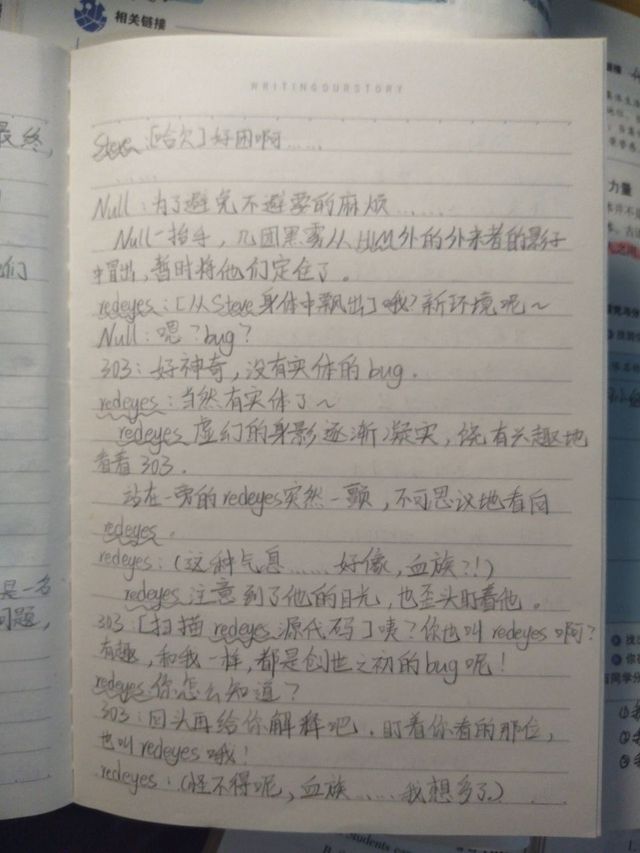 相关链接
WRITINGOURSTORY
Steve:[哈欠]好困啊……
……
Null:为了避免不避要的麻烦………
Null一抬手,几团黑雾从HIM外的外来者的影子
中冒出,暂时将他们定住了。
redeyes:[从Steve身体中飘出]哦?新环境呢~
Null:嗯?bug?
303:好神奇,没有实体的bug.
redeyes:当然有实体了~
redeyes虚幻的身影逐渐凝实,饶有兴趣地
看着303.
站在一旁的redeyes突然一颤,不可思议地看向
redeyes.
redeyes:(这种气息……好像,血族?!)
redeyes注意到了他的目光,也歪头盯着他。
303[扫描redeyes源代码]咦?你也叫redeyes啊?
有趣,和我一样,都是创世之初的bug呢!
redeyes你怎么知道?
303:回头再给你解释吧.盯着你看的那位,
也叫redeyes哦!
redeyes:(怪不得呢,血族……我想多了)
最终,
们
是一名
问题,
力量
Students